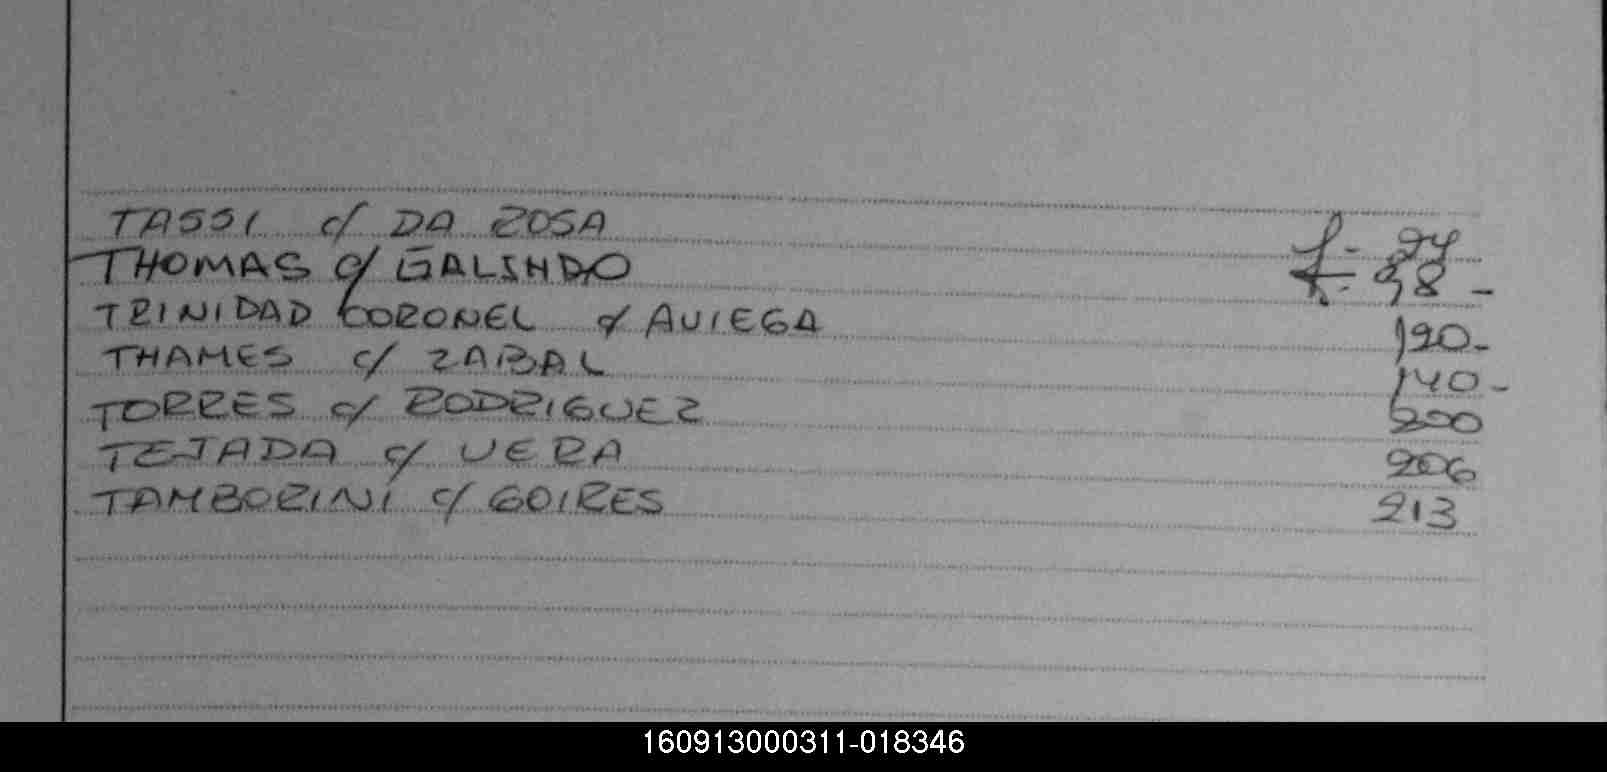 TASSI c/ DA ROSA f- 94
THOMAS c/ GALINDO f- 98 -
TRINIDAD CORONEL c/ AVIEGA 120-
THAMES c/ ZABAL 140-
TORRES c/ RODRIGUEZ 200
TEJADA c/ VERA 206
TAMBORINI c/ GOIRES 213
160913000311-018346